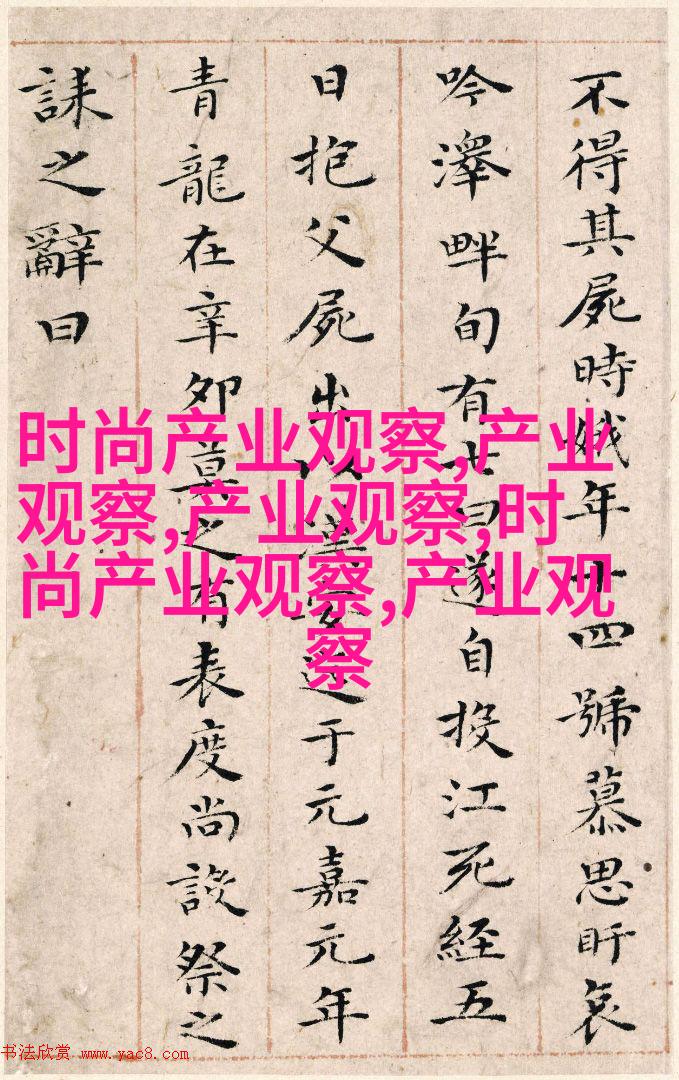 不得其屍時娥年十四號慕思盱哀
吟澤畔旬有七日遂自投江死經五
日抱父屍出以漢安迄于元嘉元年
青龍在辛卯莫之有表度尚設祭之
誄之辭曰
时尚产业观察,产业
观察,产业观察,时
尚产业观察,产业观
察
书法欣赏 www.yac8.com